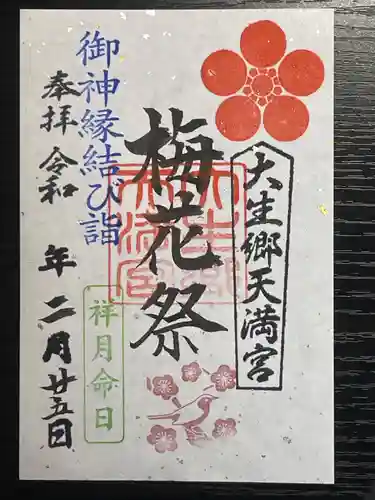 大生郷天満宮
梅花祭
御神縁結び詣
祥月命日
奉拝 令和 年 二月廿五日